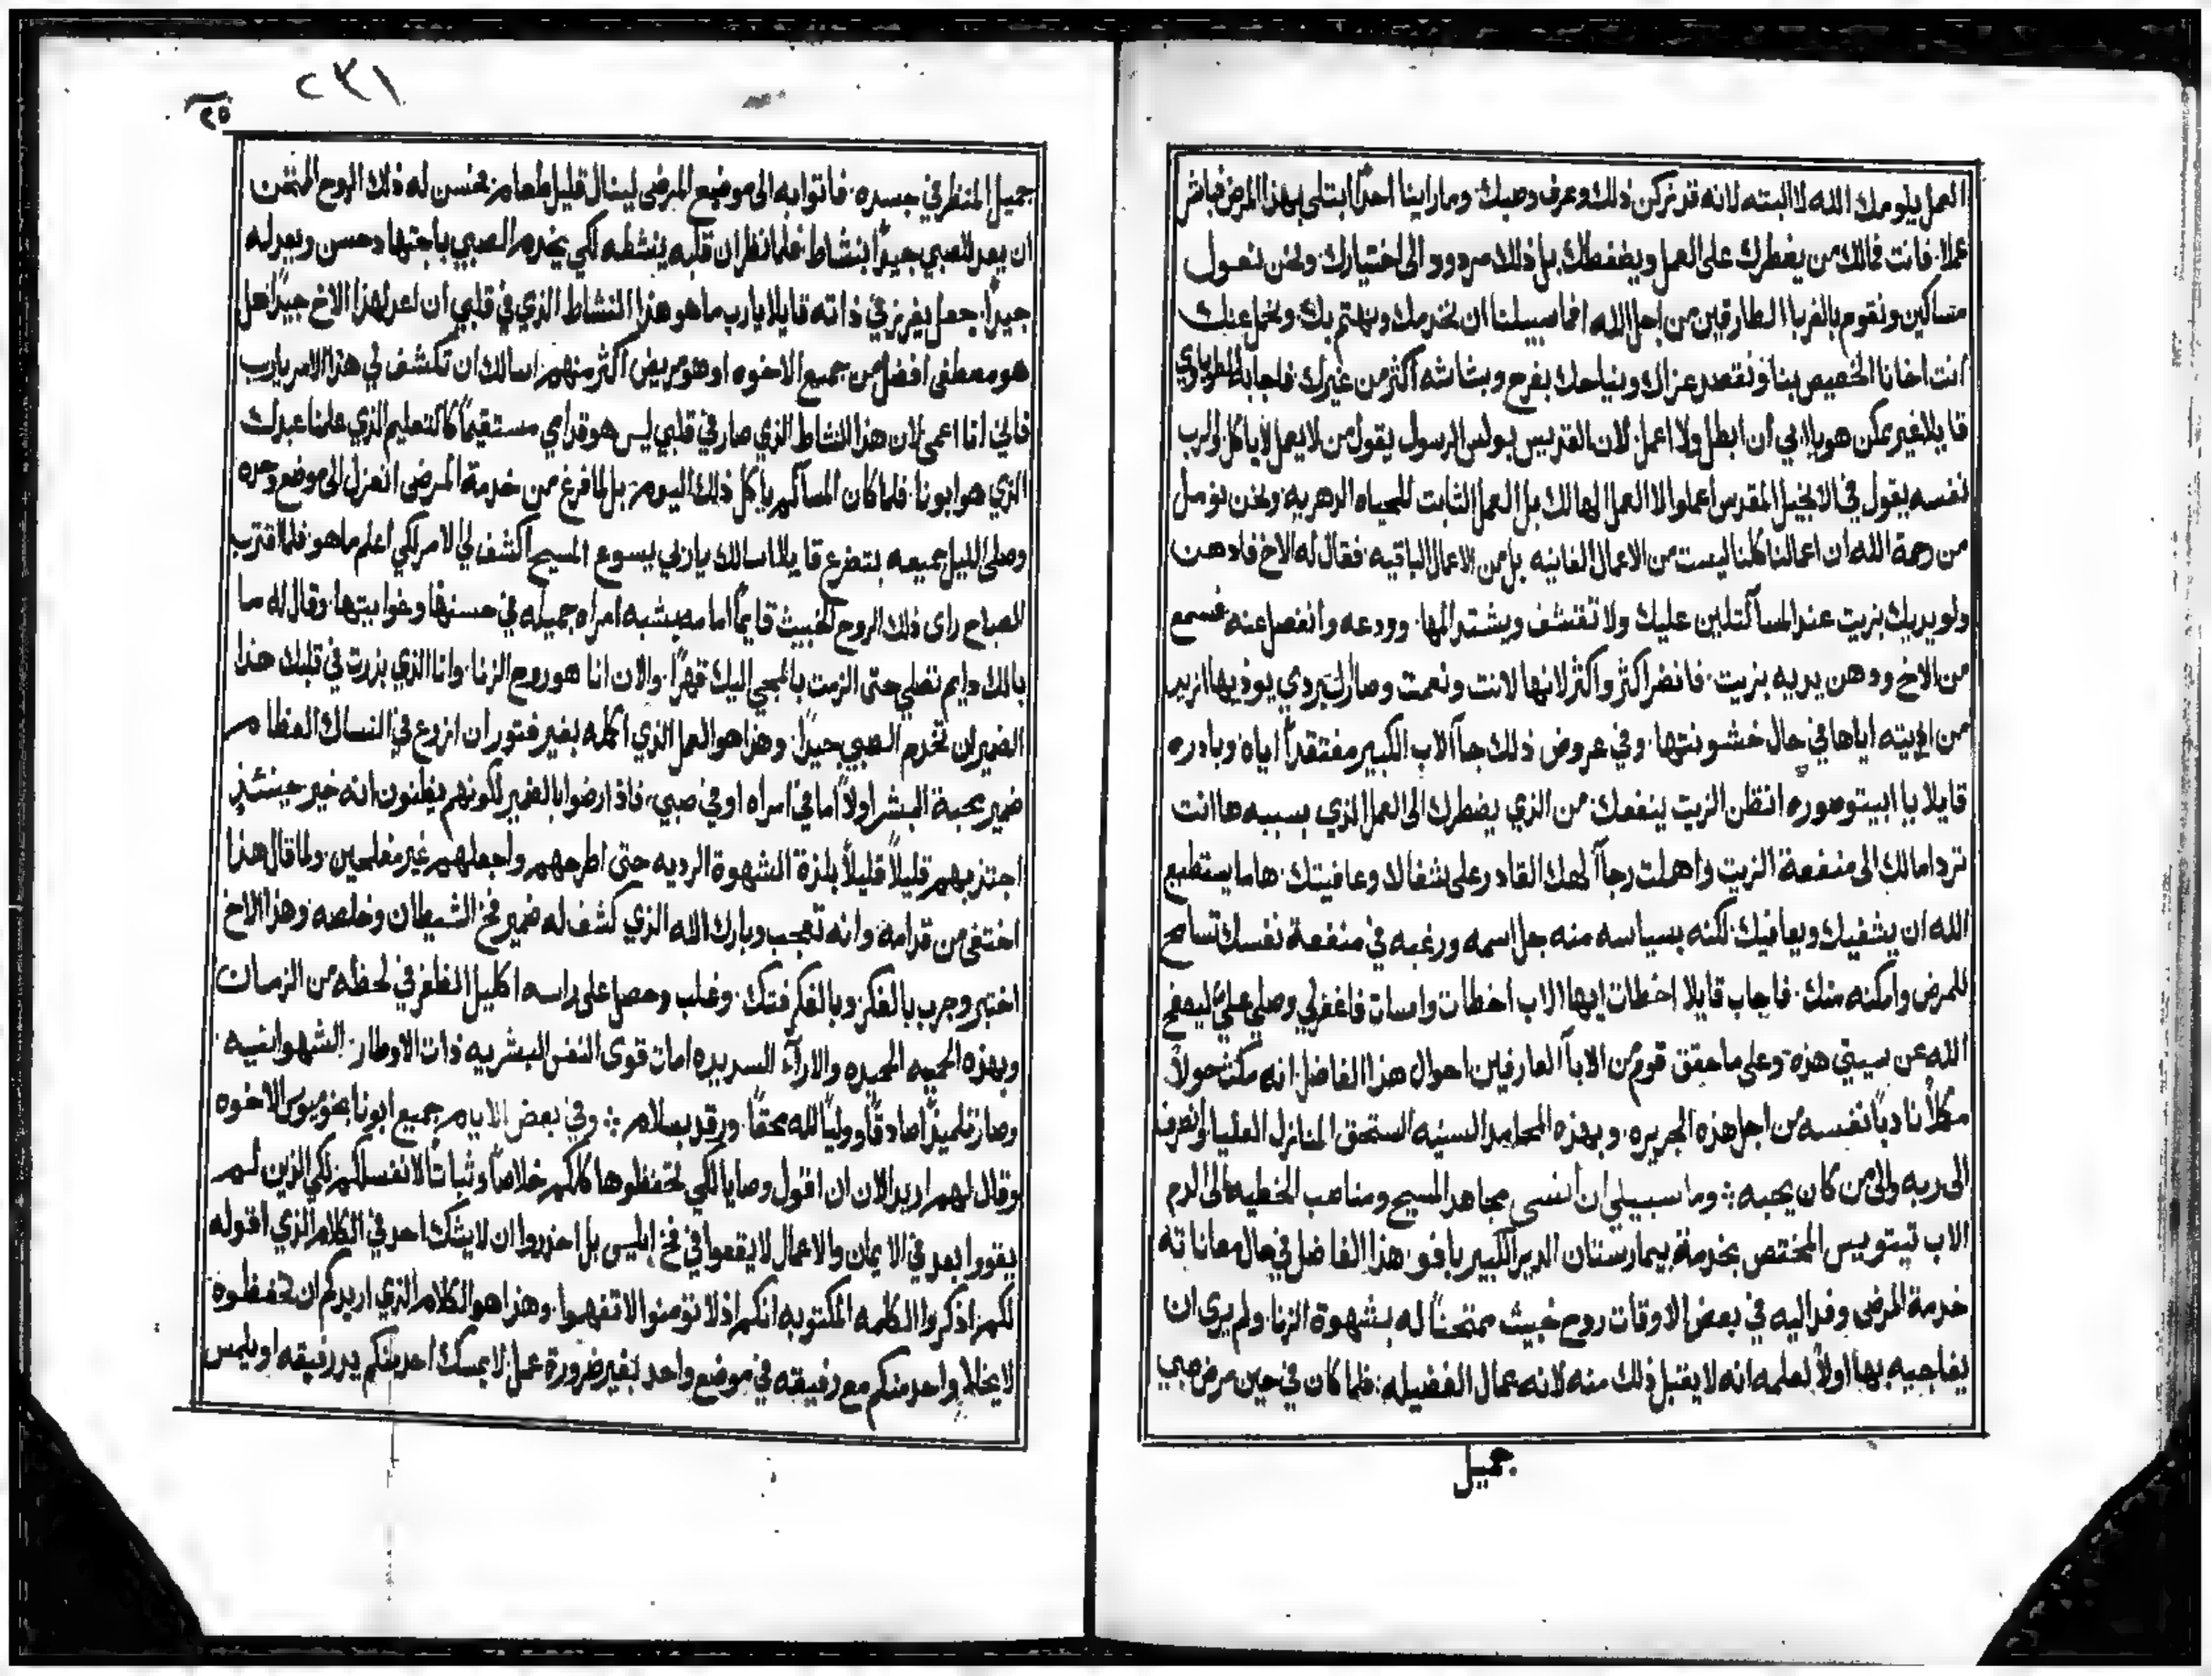 العمل يلومك الله لا البته لانه قد تركن ذلك وعرف وصبك وما راينا احدًا ابتلى بهذا المرض فباش
عملا. فانت فالك من يضطرك على العمل ويضغطك بل ذلك مردود الى اختيارك ونحن نعول
مساكين ونقوم بالغربا الطارقين من اجل الله افما سبيلنا ان نخدمك ونهتم بك ونحمل عنك
انت اخانا الخصيص بنا ونقصد عزاك ونياحك بفرح وبشاشه اكثر من غيرك فاجابه الطوباوي
قايلا غير ممكن هو يا ابي ان ابطل ولا اعمل لان القديس بولس الرسول يقول من لا يعمل لا ياكل والرب
نفسه يقول في الانجيل المقدس اعملوا لا العمل الهالك بل العمل الثابت للحياه الدهريه ونحن نومل
من رحمة الله ان اعمالنا كلنا ليست من الاعمال الفانيه بل من الاعمال الباقيه فقال له الاخ فادهن
ولو يديك بزيت عند المسا كيلا عليك ولا تقشف ويشتد المها. وودعه وانفصل عنه فسمع
من الاخ ودهن يديه بزيت فانضر اكثر واكثر لانها لانت ونعمت وصار البردي يوذيها ازيد
من اذيته اياها في حال خشونتها. وفي عروض ذلك جاآ الاب الكبير مفتقدًا اياه وبادره
قايلا يا ابيتوصوره اتظن الزيت ينفعك من الذي يضطرك الى العمل الذي بسببه ها انت
ترد امالك الى منفعة الزيت واهملت رجاآ الهك القادر على شفاك وعافيتك. هاما يستطيع
الله ان يشفيك ويعافيك لكنه بسياسه منه جل اسمه ورغبه في منفعة نفسك تسامح
للمرض وامكنه منك. فاجاب قايلا اخطات ايها الاب اخطات واسات فاغفر لي وصلي علي ليصفح
الله عن سيتي هذه وعلى ما حقق قوم من الابآ العارفين احوال هذا الفاضل انه مكث حولاً
مكملاً نادبًا نفسه من اجل هذه الجريره. وبهذه المحامد السنيه استحق المنازل العليا وانصرف
الى ربه والى من كان يحبه ⁘ وما سبيلي ان انسى مجاهد المسيح ومناصب الخطيه الى الدم
الاب تيتويس المختص بخدمة بيمارستان الدير الكبير بافو هذا الفاضل في حال معاناته
خدمة المرضى وفد اليه في بعض الاوقات روح خبيث ممتحنًا له بشهوة الزنا ولم يرى ان
يفاجيه بها اولاً لعلمه انه لا يقبل ذلك منه لانه عمال الفضيله فلما كان في حين مرض صبي
جميل
٢٣١
٢٥
جميل المنظر في جسده. فاتوا به الى موضع المرضى لينال قليل طعام فحسن له ذلك الروح المنتن
ان يعد للصبي جيدًا بنشاط فلما نظر ان قلبه ينشطه لكي يخدم الصبي باجتهاد حسن ويعد له
جيدًا. جعل يفرز في ذاته قايلا يا رب ما هو هذا النشاط الذي في قلبي ان اعد لهذا الاخ جيدًا هل
هو مصطفى افضل من جميع الاخوه او هو مريض اكثر منهم. اسالك ان تكشف لي هذا الامر يا رب
فاني انا اعمى لان هذا النشاط الذي صار في قلبي ليس هو قدامي مستقيمًا كالتعليم الذي علمنا عبدك
الذي هو ابونا. فلما كان المسآ لم ياكل ذلك اليوم بل لما فرغ من خدمة المرضى انعزل الى موضع وحده
وصلى الليل جميعه بتضرع قايلا اسالك يا ربي يسوع المسيح اكشف لي الامر لكي اعلم ما هو. فلما اقترب
الصباح راى ذلك الروح الخبيث قايمًا امامه بشبه امراه جميله في حسنها وخوابيتها. وقال له ما
بالك دايم تصلي حتى الزمت بالمجي اليك قهرًا. والان انا هو روح الزنا. وانا الذي بذرت في قلبك هذا
الضمير ان تخدم الصبي جيدًا. وهذا هو العمل الذي اكمله بغير فتور ان ازرع في النساك العظام
ضمير محبة البشر اولاً اما في امراه او في صبي. فاذا رضوا بالضمير لكونهم يظنون انه خير حينئذٍ
اجتذبهم قليلاً قليلاً بلذة الشهوة الرديه حتى اطرحهم واجعلهم غير مفلحين. ولما قال هذا
اختفى من قدامه وانه تعجب وبارك الله الذي كشف له ضمير فخ الشيطان وخلصه وهذا الاخ
اختبر وجرب بالفكر وبالفكر فتك. وغلب وحصل على راسه اكليل الظفر في لحظه من الزمان
وبهذه الحميه المجيده والارآء السديده امات قوى النفس البشريه ذات الاوطار. الشهوانيه
وصار تلميذًا صادقًا ووليًا لله محقًا. ورقد بسلام ⁘ وفي بعض الايام جميع ابونا بخوميوس الاخوه
وقال لهم اريد الان ان اقول وصايا لكي تحفظوها كلكم خلاصًا وثباتًا لانفسكم لكي الذين لهم
يقووا بعد في الايمان والاعمال لا يقعوا في فخ ابليس بل احذروا ان لا يشك احد في الكلام الذي اقوله
لكم. اذكروا الكلمه المكتوبه انكم اذ لا تومنوا لا تفهموا. وهذا هو الكلام الذي اريدكم ان تحفظوه
لا يخالط واحد منكم مع رفيقه في موضع واحد بغير ضرورة عمل لا يمسك احد منكم يد رفيقه او يلمس